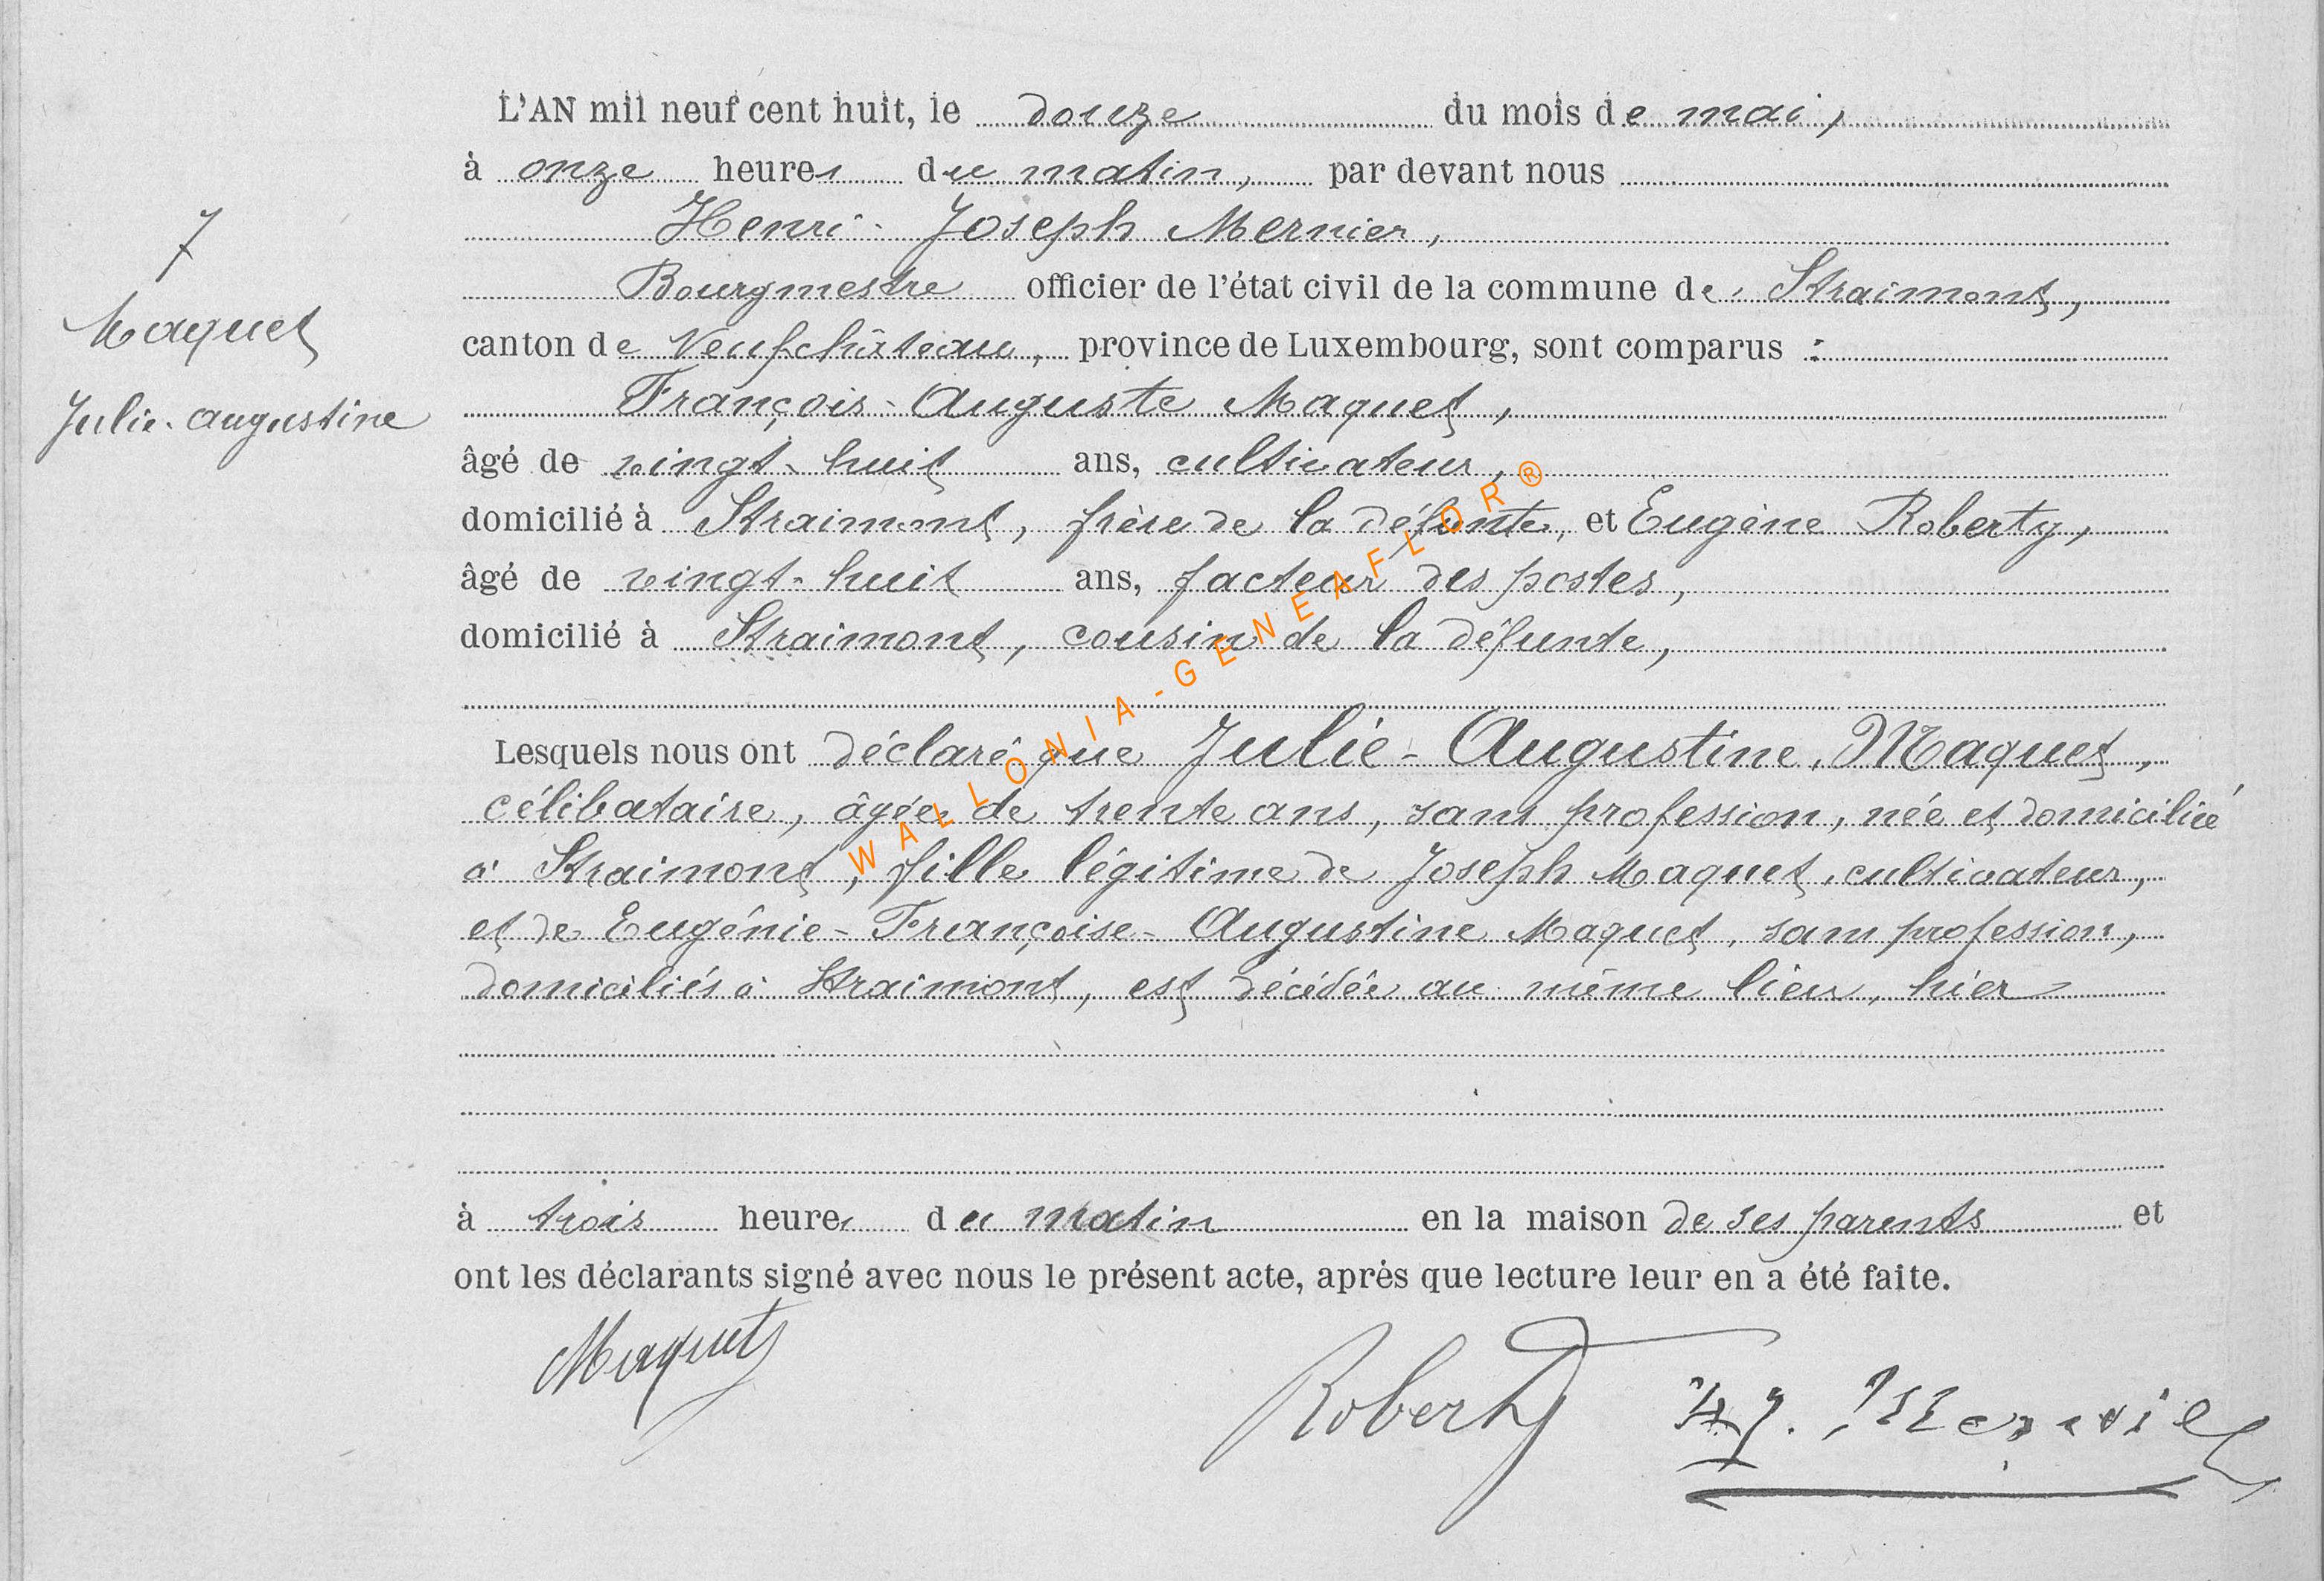 L'AN mil neuf cent huit, le douze du mois de mai,
à onze heures du matin, par devant nous
Henri-Joseph Mernier,
Bourgmestre officier de l'état civil de la commune de Straimont,
canton de Neufchâteau, province de Luxembourg, sont comparus :
François-Auguste Maquet,
âgé de vingt-huit ans, cultivateur,
domicilié à Straimont, frère de la défunte, et Eugène Roberty,
âgé de vingt-huit ans, facteur des postes,
domicilié à Straimont, cousin de la défunte,
Lesquels nous ont déclaré que Julie-Augustine Maquet,
célibataire, âgée de trente ans, sans profession, née et domiciliée
à Straimont, fille légitime de Joseph Maquet, cultivateur,
et de Eugénie-Françoise-Augustine Maquet, sans profession,
domiciliés à Straimont, est décédée au même lieu, hier
à trois heures du matin en la maison de ses parents et
ont les déclarants signé avec nous le présent acte, après que lecture leur en a été faite.
Maquet Roberty HJ. Mernier
7
Maquet
Julie-Augustine
WALLONIA-GENEAFLOR®